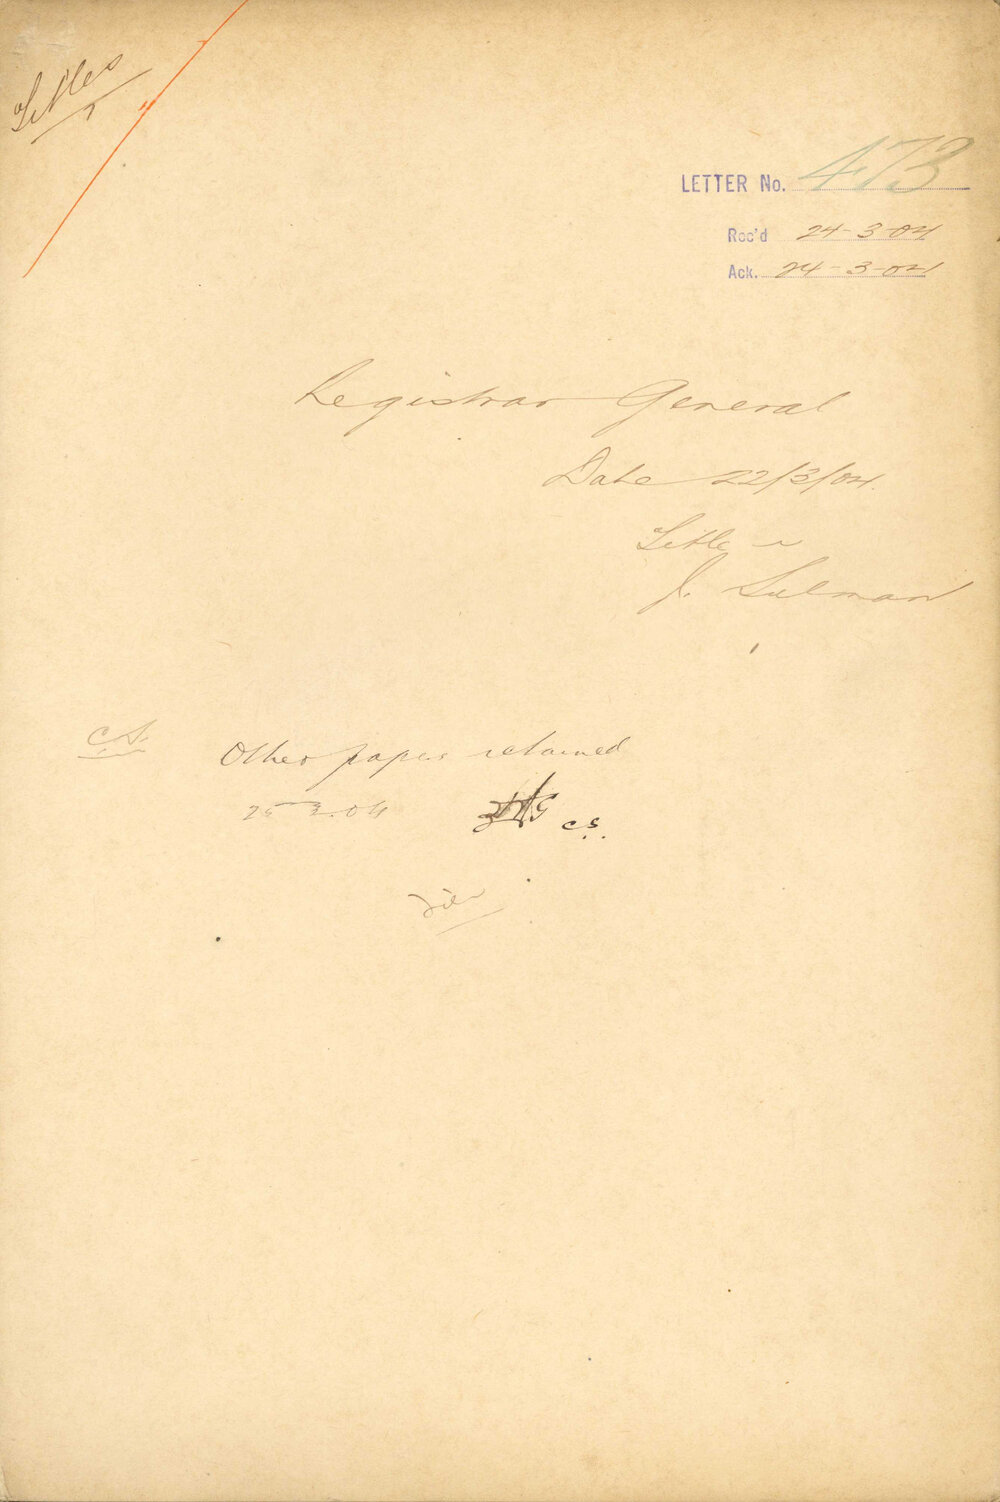 Titles
LETTER No. 473
Rec'd 24-3-04
Ack. 24-3-04
Registrar General
Date 22/3/04.
Title
J.
C.S.
Other papers retained
25-3.04
CS.
File